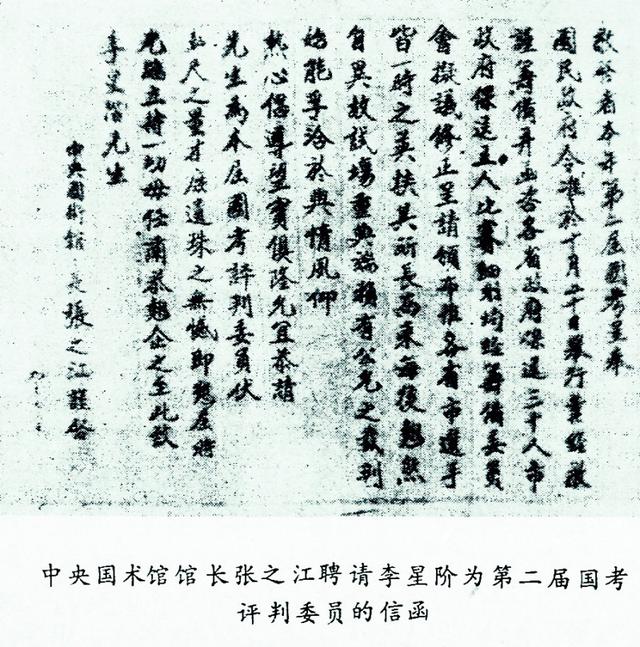 敬啓者本年第二屆國考呈奉
國民政府令准於十月二十日舉行業經積
謹籌備并函咨各省政府保送三十人市
政府保送五人比賽細則埼經籌備委員
會擬議修正呈請頒布惟各省市選手
皆一時之英挾其所長而來每後魁然
自異故試場重典端賴有公允之裁判
始能孚洽於輿情風仰
熱心倡導望實俱隆允宜恭請
先生為本屆國考評判委員伏
之量才應遺珠之無憾即懇屈將
先臨主持一切毋任肅恭翹企之至此致
李星階先生
中央國術館 長張之江謹啓
中央国术馆馆长张之江聘请李星阶为第二届国考
评判委员的信函